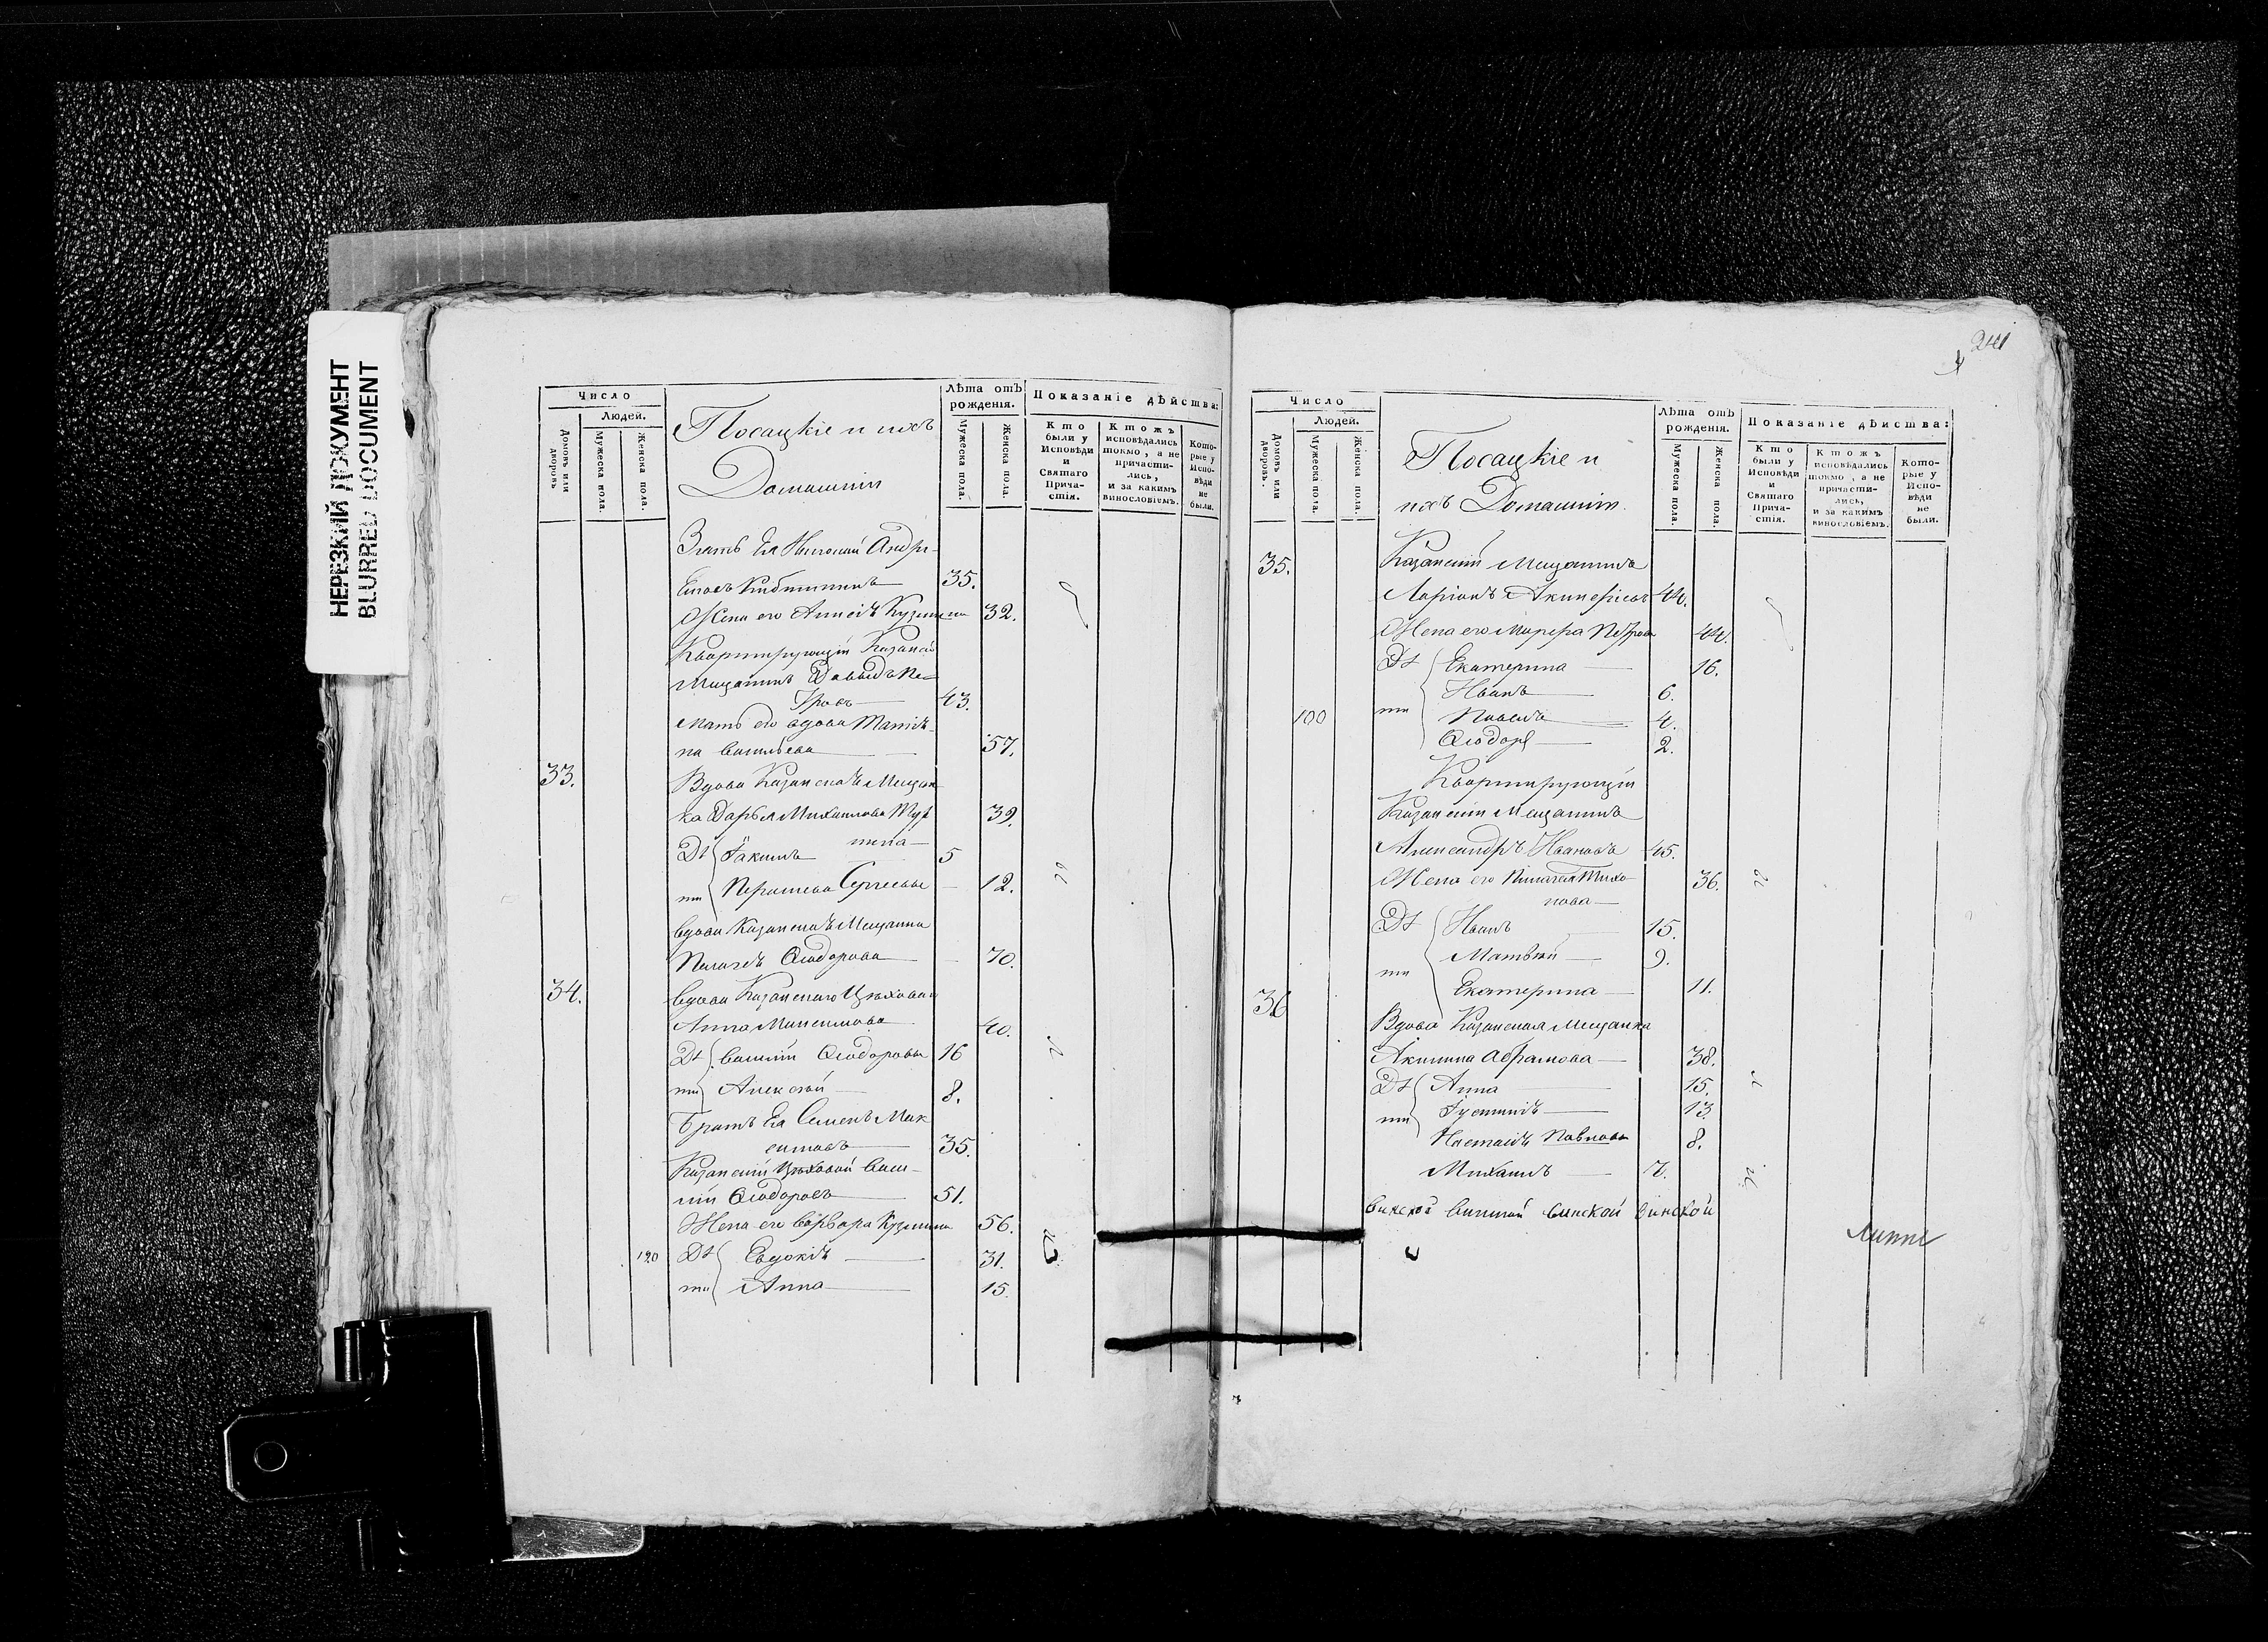 НЕРЕЗКИЙ ДОКУМЕНТ
BLURRED DOCUMENT
Число
Людей.
Домовъ или дворовъ
Мужеска пола.
Женска пола.
Посацкіе и ихъ
Домашніи
Лѣта отъ рожденія.
Мужеска пола.
Женска пола.
Показаніе дѣйства:
Кто были у Исповѣди и Святаго Причастія.
Ктожъ исповѣдались токмо, а не причастились, и за какимъ винословіемъ.
Которые у Исповѣди не были.
Зять Ея Николай Андре-
евъ 35.
Жена его Кузмина 32.
Квартирующій Казанской
Мещанинъ Давыдъ Пе-
тровъ 43.
Мать его вдова Татія-
на Васильева 57.
33. Вдова Казанскаѣ Мещан
ка Дарья Михайлова 39.
Дѣ Іакимъ 5
ти Сергеевы 12.
вдова Казанскаѣ Мещанка
Пелагеѣ Ѳеодорова 70.
34. Вдова Казанскаго Цеховаго
Анна Максимова 40.
Дѣ Василій Ѳеодоровы 16
ти Алексѣй 8.
Братъ Ея Семенъ Мак
симовъ 35.
Казанскій Цеховой Васи-
лій Ѳеодоровъ 51.
Жена его Варвара Кузмина 56.
120 Дѣ Евдокіѣ 31.
ти Анна 15.
241
Число
Людей.
Домовъ или дворовъ.
Мужеска пола.
Женска пола.
Посацкіе и
ихъ Домашніи.
Лѣта отъ рожденія.
Мужеска пола.
Женска пола.
Показаніе дѣйства:
Кто были у Исповѣди и Святаго Причастія.
Ктожъ исповѣдались токмо, а не причастились, и за какимъ винословіемъ.
Которые у Исповѣди не были.
35. Казанскій Мещанинъ
Ларіонъ 44.
Жена его Марѳра Петрова 44.
Дѣ Екатерина 16.
Иванъ 6.
100 ти Павелъ 4.
Ѳеодоръ 2.
Квартирующій
Казанскій Мещанинъ
Александръ Ивановъ 45.
Жена его Пелагея Тихо-
нова 36.
Дѣ Иванъ 15.
ти Матвѣй 9.
Екатерина 11.
36 Вдова Казанская Мещанка
Акилина Абрамова 38.
Дѣ Анна 15.
ти Іустиніѣ 13
Настасіѣ Павловы 8.
Михаилъ 7.